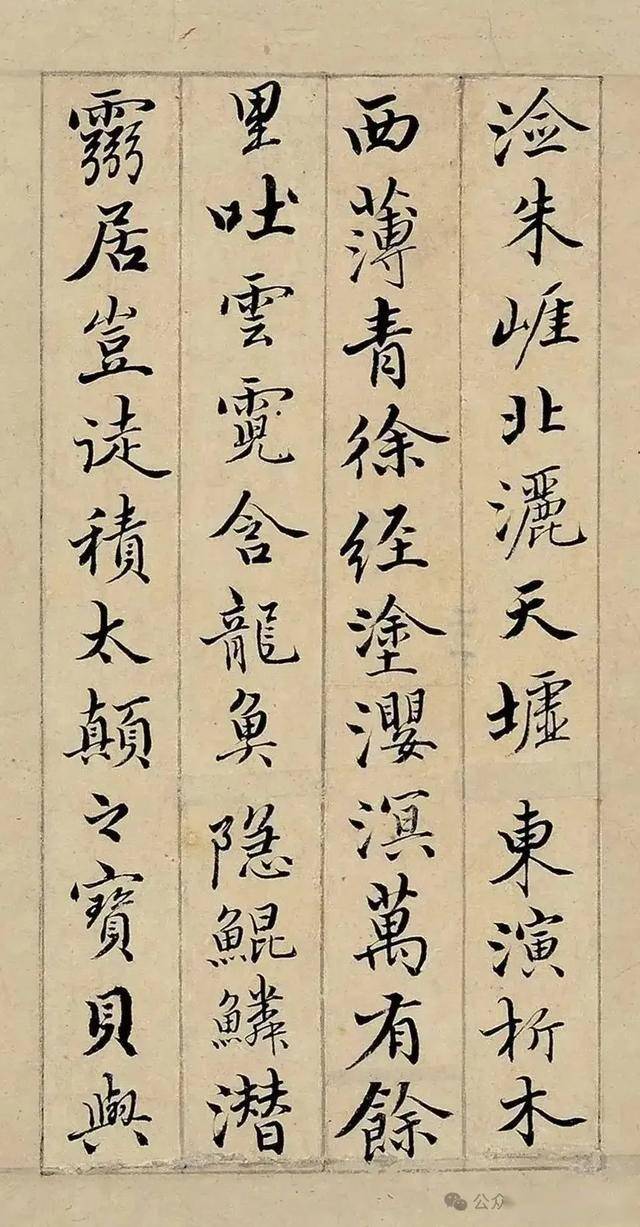 澰朱崕北灑天墟東演析木
西薄青徐經塗瀴溟萬有餘
里吐雲霓含龍魚隱鯤鱗潛
靈居豈徒積太顛之寶貝與
公众